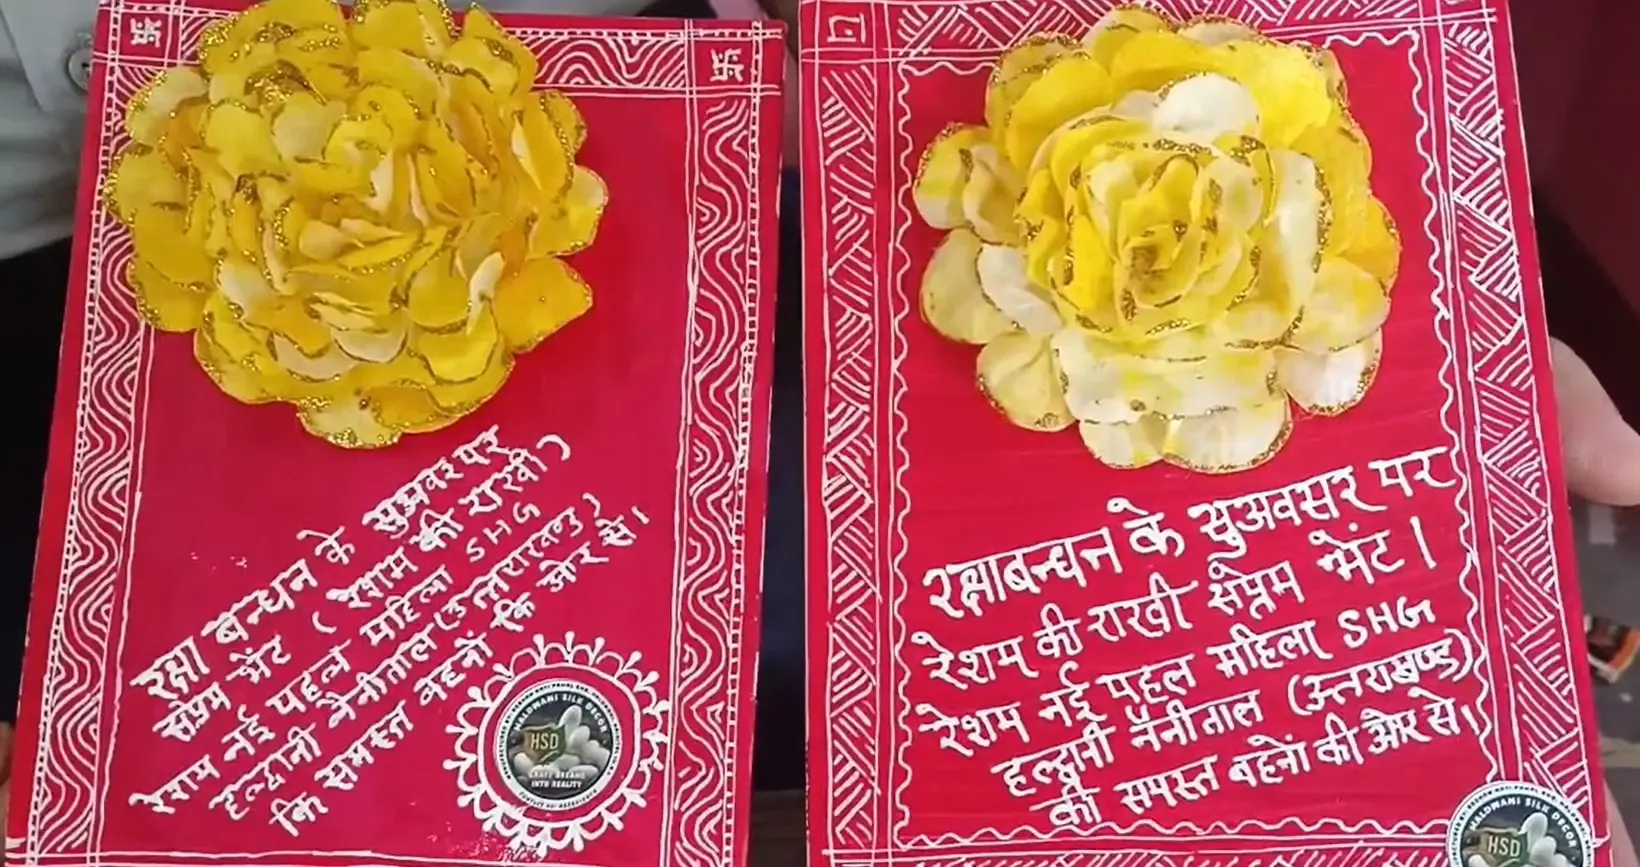 रक्षा बन्धन के सुअवसर पर
सप्रेम भेंट (रेशम की राखी)
रेशम नई पहल महिला SHG
हल्द्वानी नैनीताल (उत्तराखण्ड)
कि समस्त बहनों कि ओर से।
HALDWANI SILK DECOR
HSD
CRAFT DREAMS
INTO REALITY
रक्षाबन्धन के सुअवसर पर
रेशम की राखी सप्रेम भेंट।
रेशम नई पहल महिला SHG
हल्द्वनी नैनीताल (उत्तराखण्ड)
की समस्त बहनों की ओर से।
HALDWANI SILK DECOR
HSD